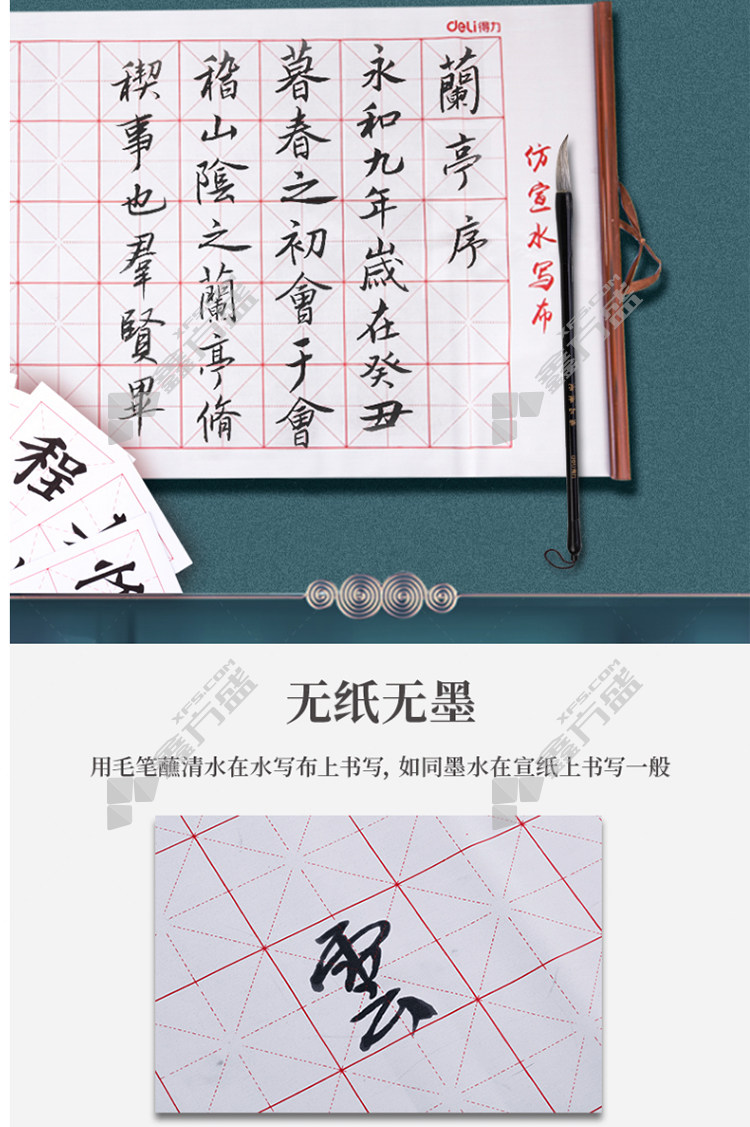 deli得力
蘭亭序
永和九年歲在癸丑
暮春之初會于會
稽山陰之蘭亭脩
稧事也羣賢畢
仿宣水写布
程
XFS.COM
鑫方盛
XFS.COM
鑫方盛
无纸无墨
XFS.COM
鑫方盛
XFS.COM
鑫方盛
用毛笔蘸清水在水写布上书写, 如同墨水在宣纸上书写一般
雲